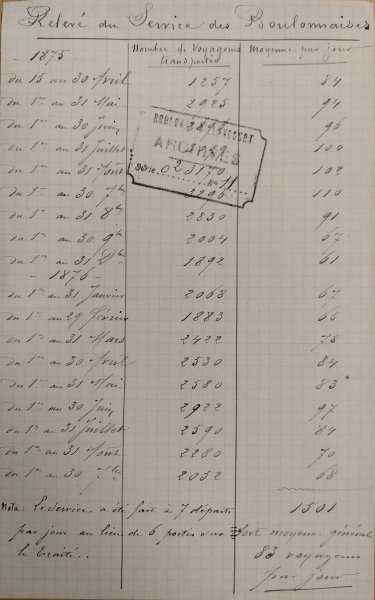 Relevé du Service des Boulonnaises
Nombre de Voyageurs transportés
Moyenne par jour
- 1875 -
du 15 au 30 Avril 1257 84
du 1er au 31 Mai 2925 94
du 1er au 30 Juin 96
du 1er au 31 Juillet 100
du 1er au 31 Août 3170 102
du 1er au 30 7bre 3296 110
du 1er au 31 8bre 2830 91
du 1er au 30 9bre 2004 67
du 1er au 31 Dbre 1892 61
- 1876 -
du 1er au 31 Janvier 2068 67
du 1er au 29 Février 1883 65
du 1er au 31 Mars 2422 78
du 1er au 30 Avril 2530 84
du 1er au 31 Mai 2580 83
du 1er au 30 Juin 2922 97
du 1er au 31 Juillet 2590 84
du 1er au 31 Août 2280 70
du 1er au 30 7bre 2052 68
1501
Nota: Le service a été fait à 7 départs
par jour au lieu de 6 portés sur
le traité..
Soit moyenne générale
83 voyageurs
par jour
BOULOGNE-BILLANCOURT
ARCHIVES
Série O2 No 11